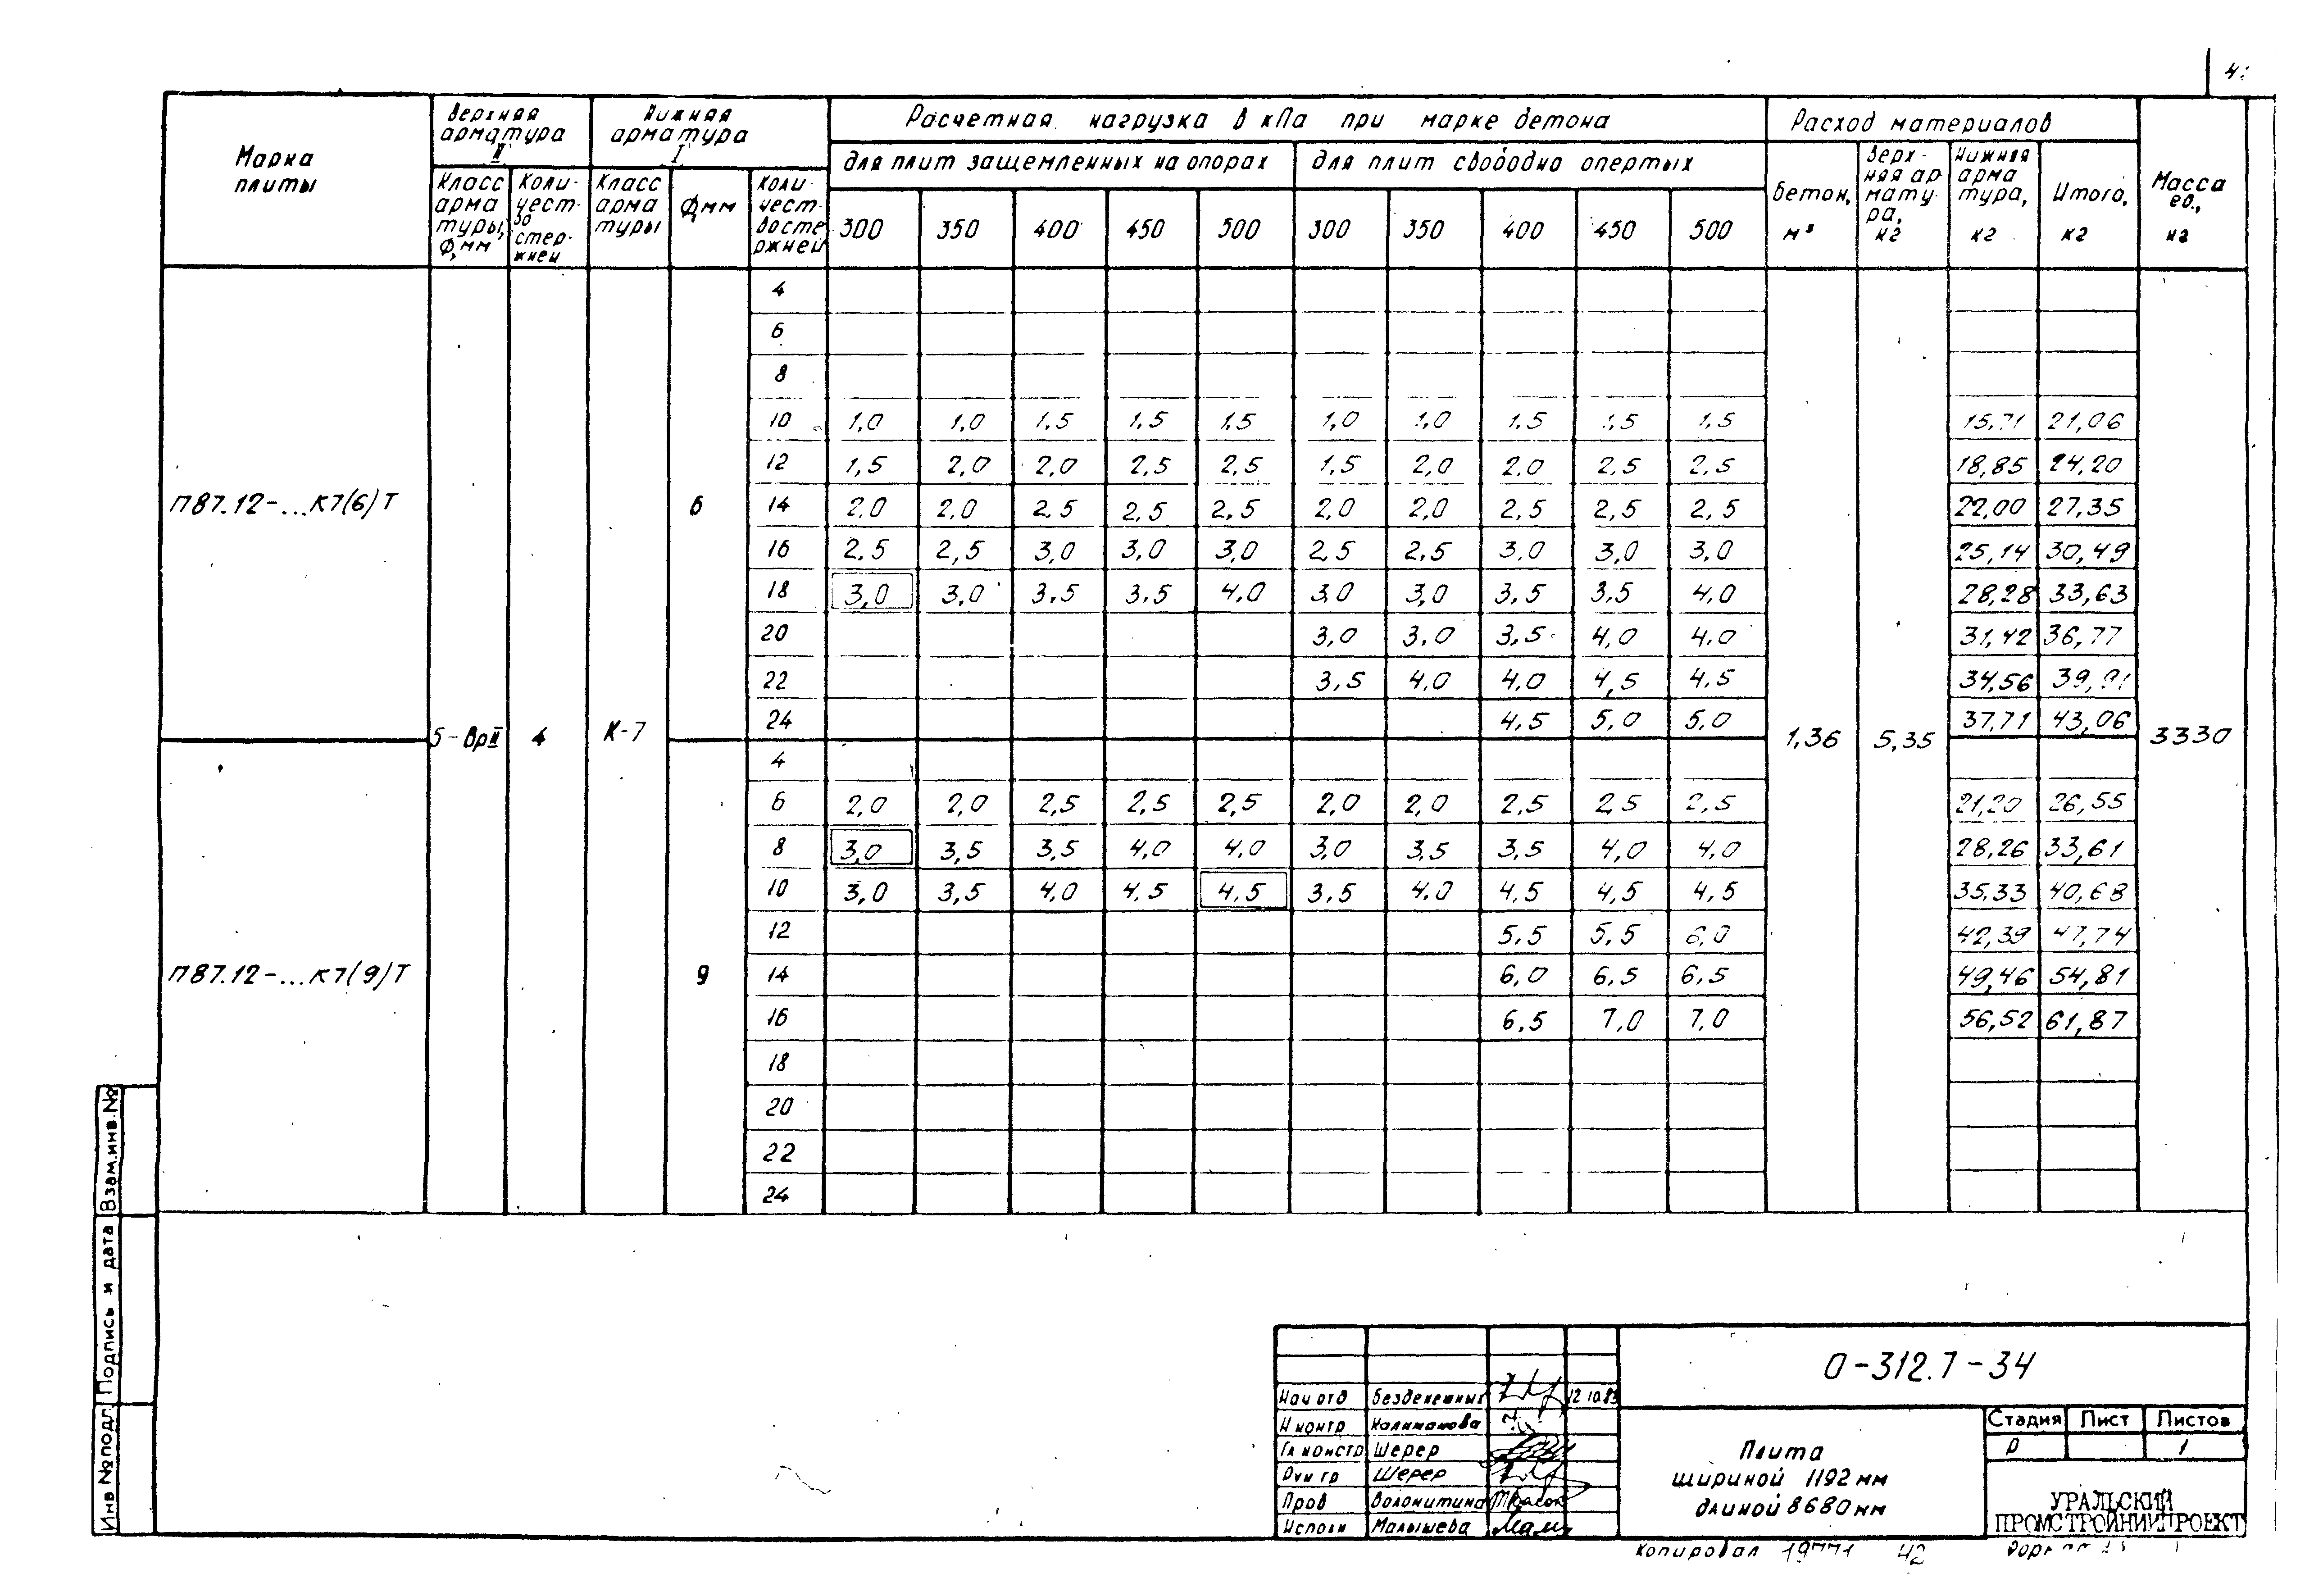 Марка плиты
Верхняя арматура II
Нижняя арматура I
Расчетная нагрузка в кПа при марке бетона
Расход материалов
Масса ед., кг
для плит защемленных на опорах
для плит свободно опертых
Класс арматуры, ф, мм
Количество стержней
Класс арматуры
ф мм
Количество стержней
300 350 400 450 500 300 350 400 450 500
Бетон, м³
Верхняя арматура, кг
Нижняя арматура, кг
Итого, кг
П87.12-...К7(6)Т
5-ВрII 4 К-7 6
1,36 5,35 3330
4
6
8
10 1,0 1,0 1,5 1,5 1,5 1,0 1,0 1,5 1,5 1,5 15,71 21,06
12 1,5 2,0 2,0 2,5 2,5 1,5 2,0 2,0 2,5 2,5 18,85 24,20
14 2,0 2,0 2,5 2,5 2,5 2,0 2,0 2,5 2,5 2,5 22,00 27,35
16 2,5 2,5 3,0 3,0 3,0 2,5 2,5 3,0 3,0 3,0 25,14 30,49
18 3,0 3,0 3,5 3,5 4,0 3,0 3,0 3,5 3,5 4,0 28,28 33,63
20 3,0 3,0 3,5 4,0 4,0 31,42 36,77
22 3,5 4,0 4,0 4,5 4,5 34,56 39,91
24 4,5 5,0 5,0 37,71 43,06
П87.12-...К7(9)Т
9
4
6 2,0 2,0 2,5 2,5 2,5 2,0 2,0 2,5 2,5 2,5 21,20 26,55
8 3,0 3,5 3,5 4,0 4,0 3,0 3,5 3,5 4,0 4,0 28,26 33,61
10 3,0 3,5 4,0 4,5 4,5 3,5 4,0 4,5 4,5 4,5 35,33 40,68
12 5,5 5,5 6,0 42,39 47,74
14 6,0 6,5 6,5 49,46 54,81
16 6,5 7,0 7,0 56,52 61,87
18
20
22
24
Взам.инв.№
Подпись и дата
Инв №подл
О-312.1-34
Нач отд Безденежных
Н контр Калиманова
Гл констр Шерер
Рук гр Шерер
Пров Волокитина
Исполн Малышева
Плита
шириной 1192 мм
длиной 8680 мм
Стадия Лист Листов
Р 1
УРАЛЬСКИЙ
ПРОМСТРОЙНИИПРОЕКТ
Копировал 19771 42